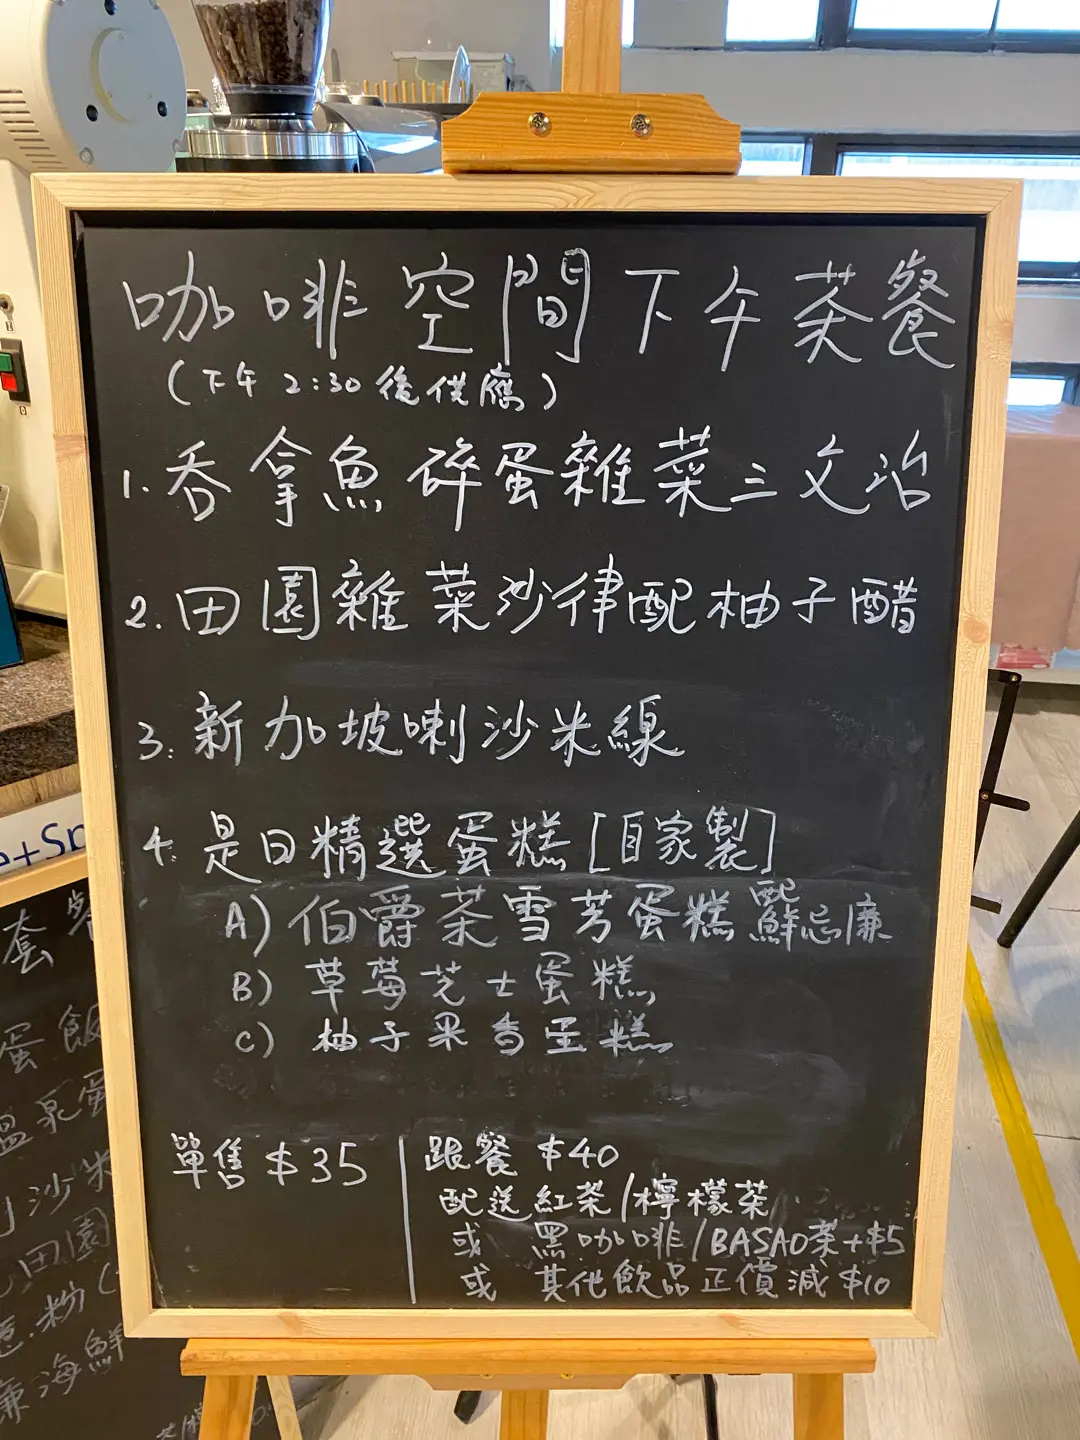 咖啡空間下午茶餐
(下午2:30後供應)
1. 吞拿魚碎蛋雜菜三文治
2. 田園雜菜沙律配柚子醋
3. 新加坡喇沙米線
4. 是日精選蛋糕[自家製]
A) 伯爵茶雪芳蛋糕配鮮忌廉
B) 草莓芝士蛋糕
C) 柚子果香蛋糕
單售 $35
跟餐 $40
配送紅茶/檸檬茶
或 黑咖啡/BASAO茶+$5
或 其他飲品正價減$10
e+Sp
套餐
蛋飯
溫泉蛋
沙米
田園
粉(
海鮮